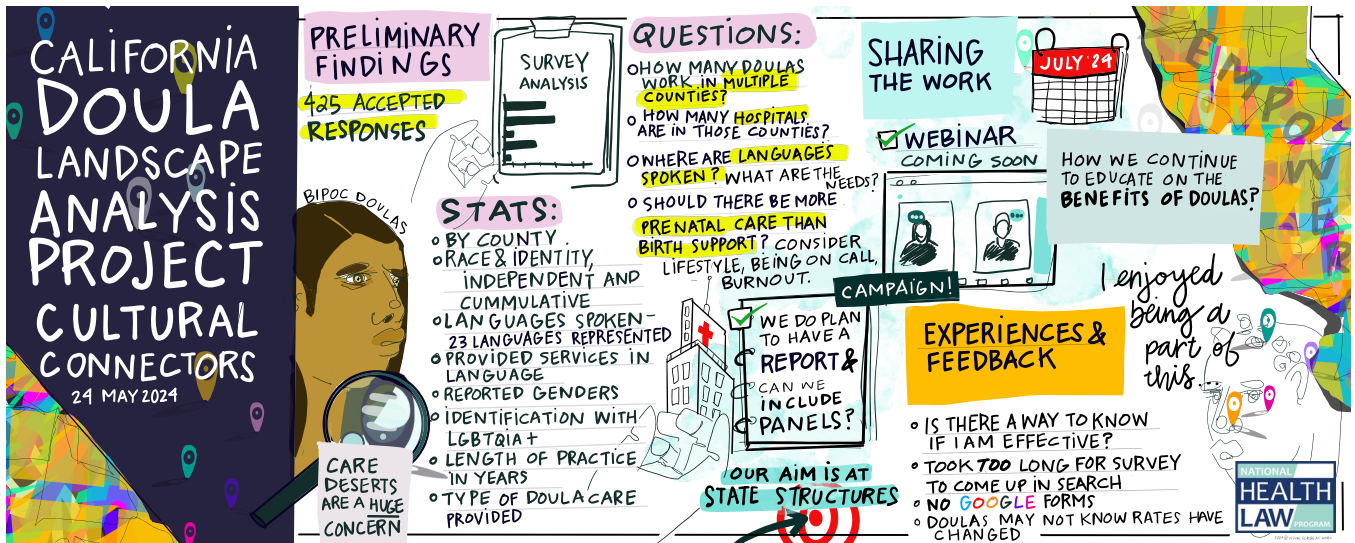 CALIFORNIA
DOULA
LANDSCAPE
ANALYSIS
PROJECT
CULTURAL
CONNECTORS
24 MAY 2024
PRELIMINARY
FINDINGS
425 ACCEPTED
RESPONSES
SURVEY
ANALYSIS
BIPOC DOULAS
CARE
DESERTS
ARE A HUGE
CONCERN
STATS:
BY COUNTY
RACE & IDENTITY,
INDEPENDENT AND
CUMMULATIVE
LANGUAGES SPOKEN-
23 LANGUAGES REPRESENTED
PROVIDED SERVICES IN
LANGUAGE
REPORTED GENDERS
IDENTIFICATION WITH
LGBTQIA+
LENGTH OF PRACTICE
IN YEARS
TYPE OF DOULA CARE
PROVIDED
QUESTIONS:
HOW MANY DOULAS
WORK IN MULTIPLE
COUNTIES?
HOW MANY HOSPITALS
ARE IN THOSE COUNTIES?
WHERE ARE LANGUAGES
SPOKEN? WHAT ARE THE
NEEDS?
SHOULD THERE BE MORE
PRENATAL CARE THAN
BIRTH SUPPORT? CONSIDER
LIFESTYLE, BEING ON CALL,
BURNOUT.
CAMPAIGN!
WE DO PLAN
TO HAVE A
REPORT &
CAN WE
INCLUDE
PANELS?
OUR AIM IS AT
STATE STRUCTURES
SHARING
THE WORK
JULY '24
WEBINAR
COMING SOON
HOW WE CONTINUE
TO EDUCATE ON THE
BENEFITS OF DOULAS?
EMPOWER
I enjoyed
being a
part of
this...
EXPERIENCES &
FEEDBACK
IS THERE A WAY TO KNOW
IF I AM EFFECTIVE?
TOOK TOO LONG FOR SURVEY
TO COME UP IN SEARCH
NO GOOGLE FORMS
DOULAS MAY NOT KNOW RATES HAVE
CHANGED
NATIONAL
HEALTH
LAW PROGRAM